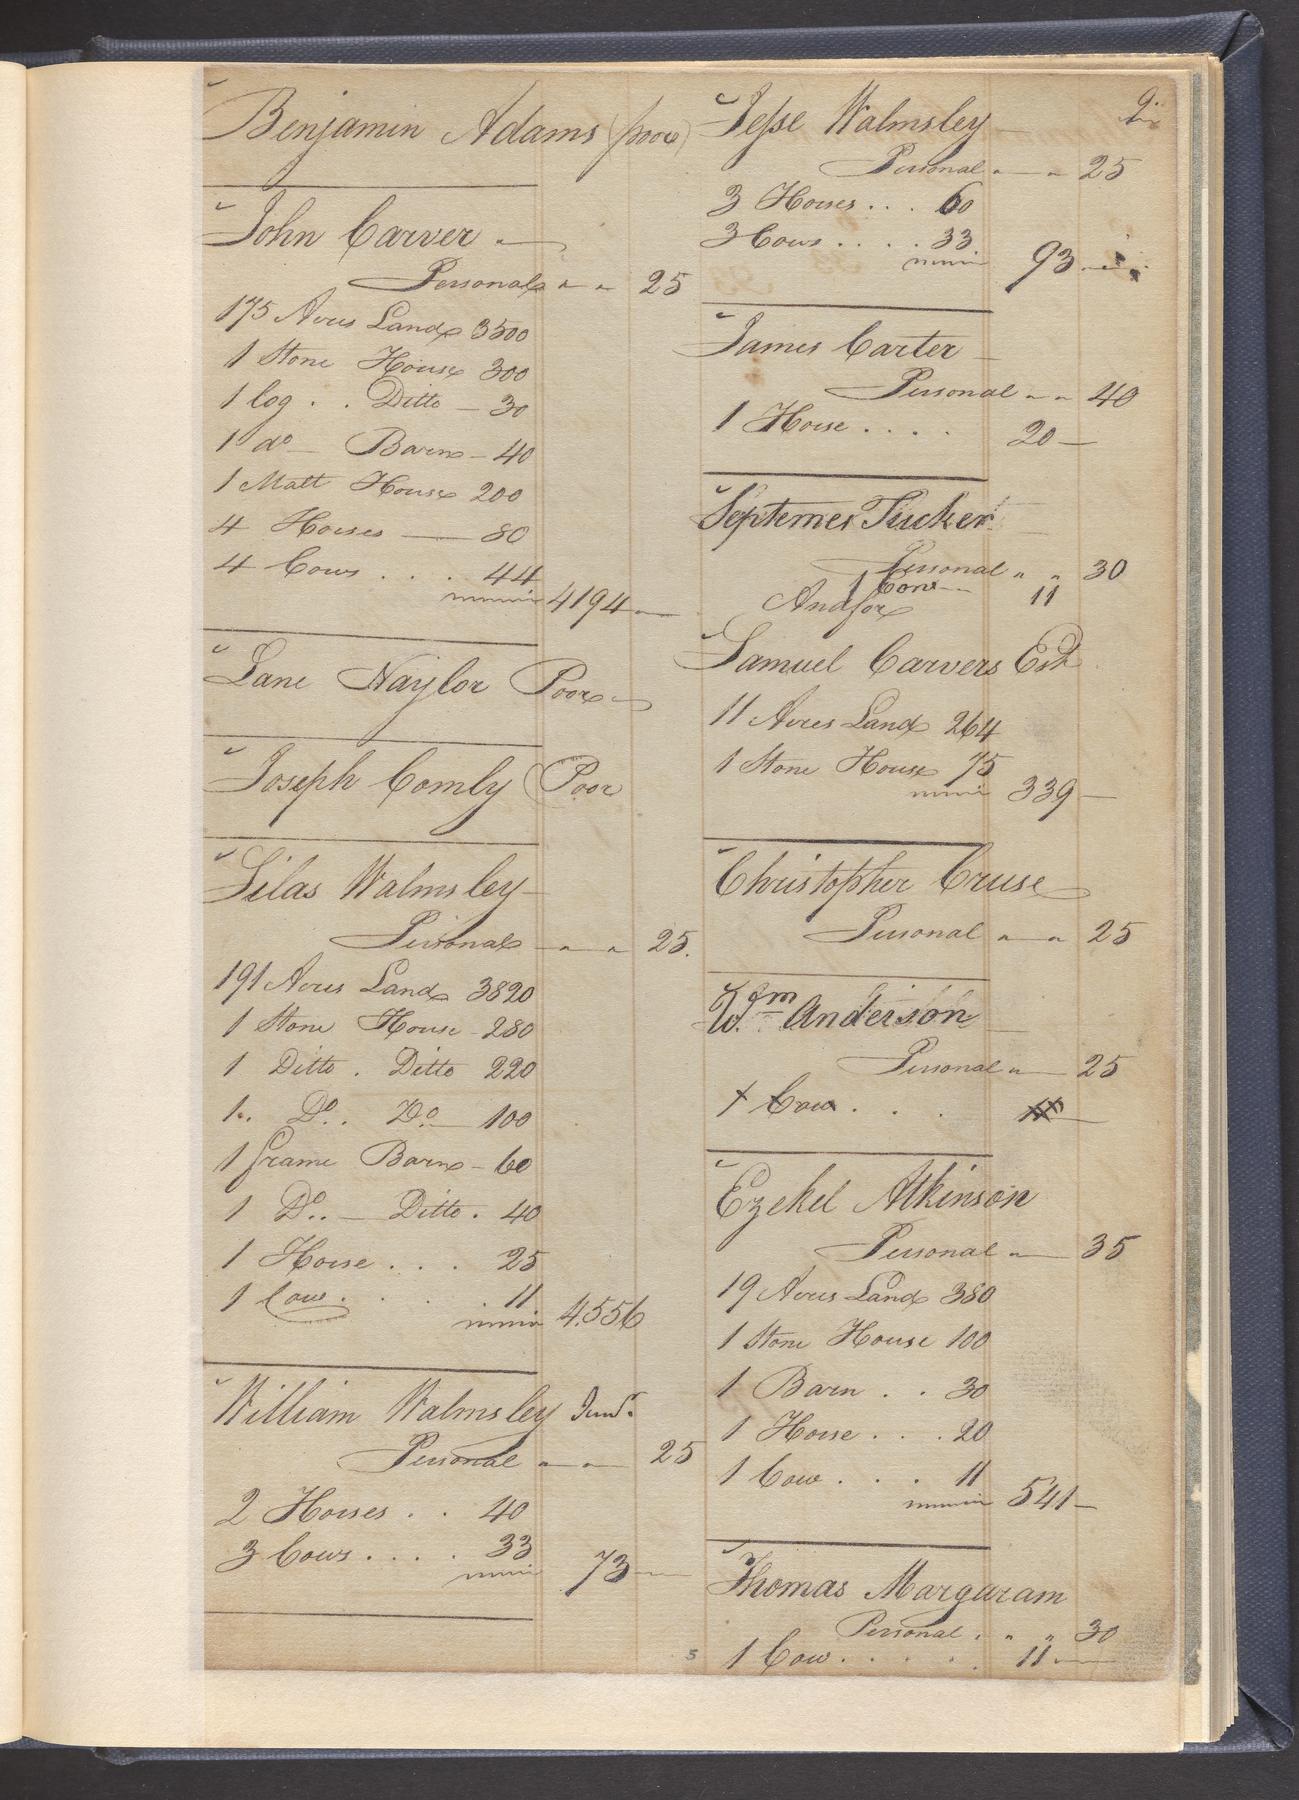 Benjamin Adams (poor)
John Carver
Personal " " 25
175 Acres Land 3500
1 Stone House 300
1 log . . Ditto — 30
1 do — Barn — 40
1 Malt House 200
4 Horses — 80
4 Cows . . . 44
4194 —
Lane Naylor Poor
Joseph Comly (Poor
Silas Walmsley
Personal — " " 25.
191 Acres Land 3820
1 Stone House 280
1 Ditto . Ditto 220
1.. Do. . Do. 100
1 frame Barn - 60
1 Do.. — Ditto . 40
1 Horse . . . 25
1 Cow . . . . 11
4.556
William Walmsley Junr.
Personal " " 25
2 Horses . . 40
3 Cows . . . . 33
73 —
9
Jesse Walmsley
Personal " — " 25
3 Horses . . . 60
3 Cows . . . . 33
93
James Carter
Personal " " 40
1 Horse . . . . 20 —
Septemer Tucker
Personal " " 30
1 Cow 11
And for
Samuel Carvers Est
11 Acres Land 264
1 Stone House 75
339 —
Christopher Cruse
Personal " " 25
Wm Anderson
Personal " — 25
1 Cow . . .
Ezekel Atkinson
Personal " — 35
19 Acres Land 380
1 Stone House 100
1 Barn . . 30
1 Horse . . . 20
1 Cow . . . 11
541 —
Thomas Marguram
Personal . " " 30
1 Cow . . . . . 11 —
5